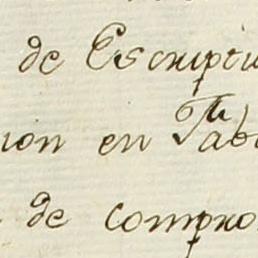 de Escriptu
ion en Tab
de compro